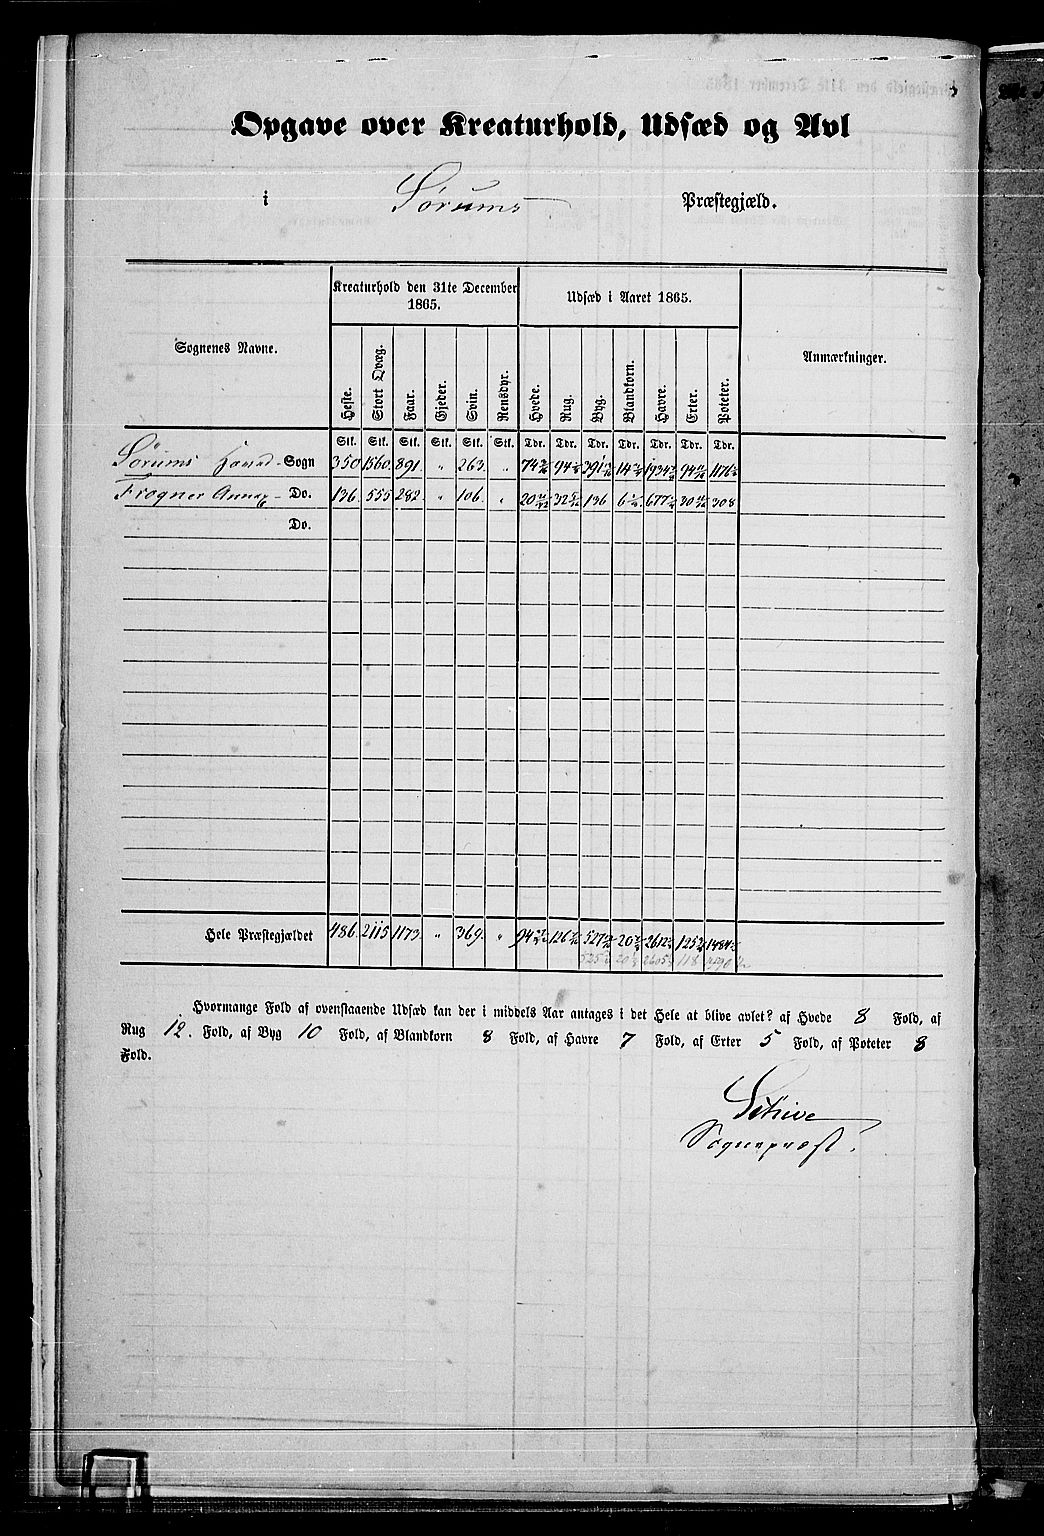 Opgave over Kreaturhold, Udsæd og Avl
i Sørums Præstegjæld.
Sognenes Navne.
Kreaturhold den 31te December 1865.
Udsæd i Aaret 1865.
Anmærkninger.
Heste. Stort Qvæg. Faar. Gjeder. Svin. Rensdyr. Hvede. Rug. Byg. Blandkorn. Havre. Erter. Poteter.
Stk. Stk. Stk. Stk. Stk. Stk. Tdr. Tdr. Tdr. Tdr. Tdr. Tdr. Tdr.
Sørums Hoved- Sogn 350 1560. 891. " 263. " 74 94 391 14 1934 94 1176
Frogner Annex- Do. 136. 555 282. " 106. " 20 325 136 6 677 30 308
Do.
Hele Præstegjældet 486. 2115 1173. " 369. " 94 126 527 20 2612 125 1484
525 20 2605 118
Hvormange Fold af ovenstaaende Udsæd kan der i middels Aar antages i det Hele at blive avlet? af Hvede 8 Fold, af
Rug 12. Fold, af Byg 10 Fold, af Blandkorn 8 Fold, af Havre 7 Fold, af Erter 5 Fold, af Poteter 8
Fold.
Schive
Sognepræst.